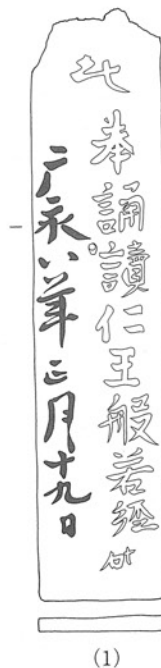 奉誦讀仁王般若經
応永八年正月十九日
(1)